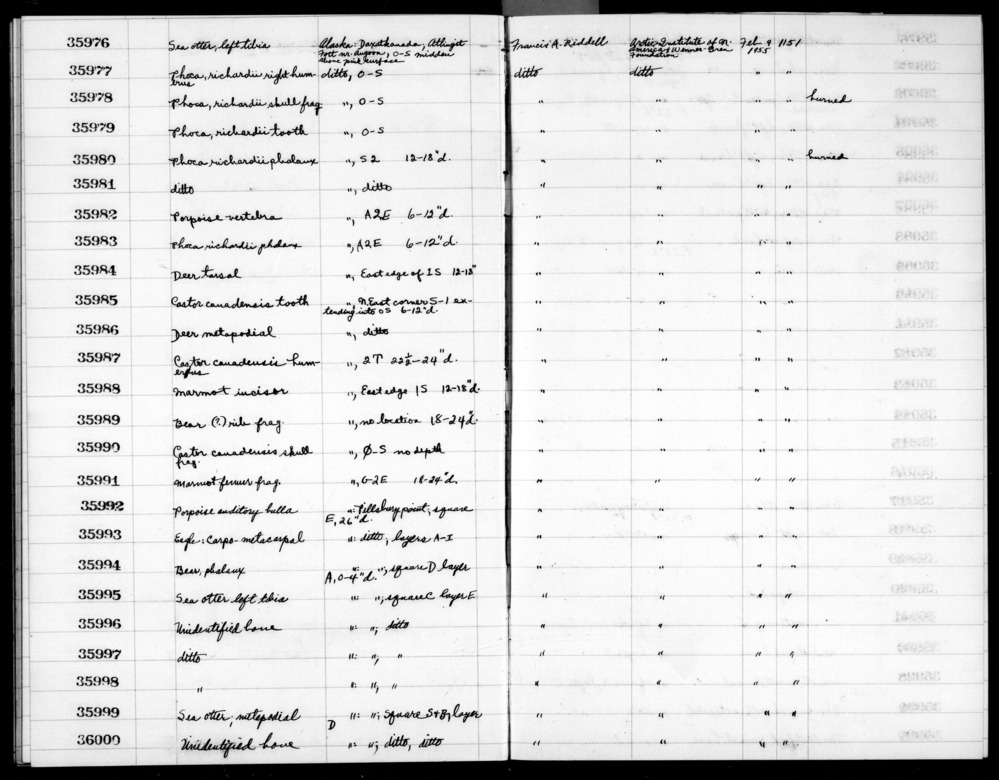 35976 Sea otter, left tibia Alaska: Daxatkanada, Atlingit Francis A. Riddell Arctic Institute of N. Feb. 9 1151
Fort nr. Angoon, O-S midden America & Wenner-Gren 1955
above pink surface Foundation
35977 Phoca, richardii right hum- ditto, O-S ditto ditto " "
erus
35978 Phoca, richardii skull frag. ", O-S " " " " burned
35979 Phoca, richardii tooth ", O-S " " " "
35980 Phoca richardii phalanx ", S2 12-18"d. " " " " burned
35981 ditto ", ditto " " " "
35982 Porpoise vertebra ", A2E 6-12"d. " " " "
35983 Phoca richardii phalanx ", A2E 6-12"d. " " " "
35984 Deer tarsal ", East edge of 1S 12-18" " " " "
35985 Castor canadensis tooth ", N.East corner S-1 ex- " " " "
tending into OS 6-12"d.
35986 Deer metapodial ", ditto " " " "
35987 Castor canadensis hum- ", 2T 22½-24"d. " " " "
erus
35988 Marmot incisor ", East edge 1S 12-18"d. " " " "
35989 Bear (?) rib frag. ", no location 18-24"d. " " " "
35990 Castor canadensis skull ", Ø-S no depth " " " "
frag.
35991 Marmot femur frag. ", G-2E 18-24"d. " " " "
35992 Porpoise auditory bulla ": Pillsbury point, square " " " "
E, 26"d.
35993 Eagle: Carpo-metacarpal ": ditto, layers A-I " " " "
35994 Bear, phalanx ": "; square D layer " " " "
A, 0-4"d.
35995 Sea otter left tibia ": "; square C layer E " " " "
35996 Unidentified bone ": "; ditto " " " "
35997 ditto ": "; " " " " "
35998 " ": "; " " " " "
35999 Sea otter; metapodial ": "; Square S+B, layer " " " "
D
36000 Unidentified bone ": "; ditto, ditto " " " "